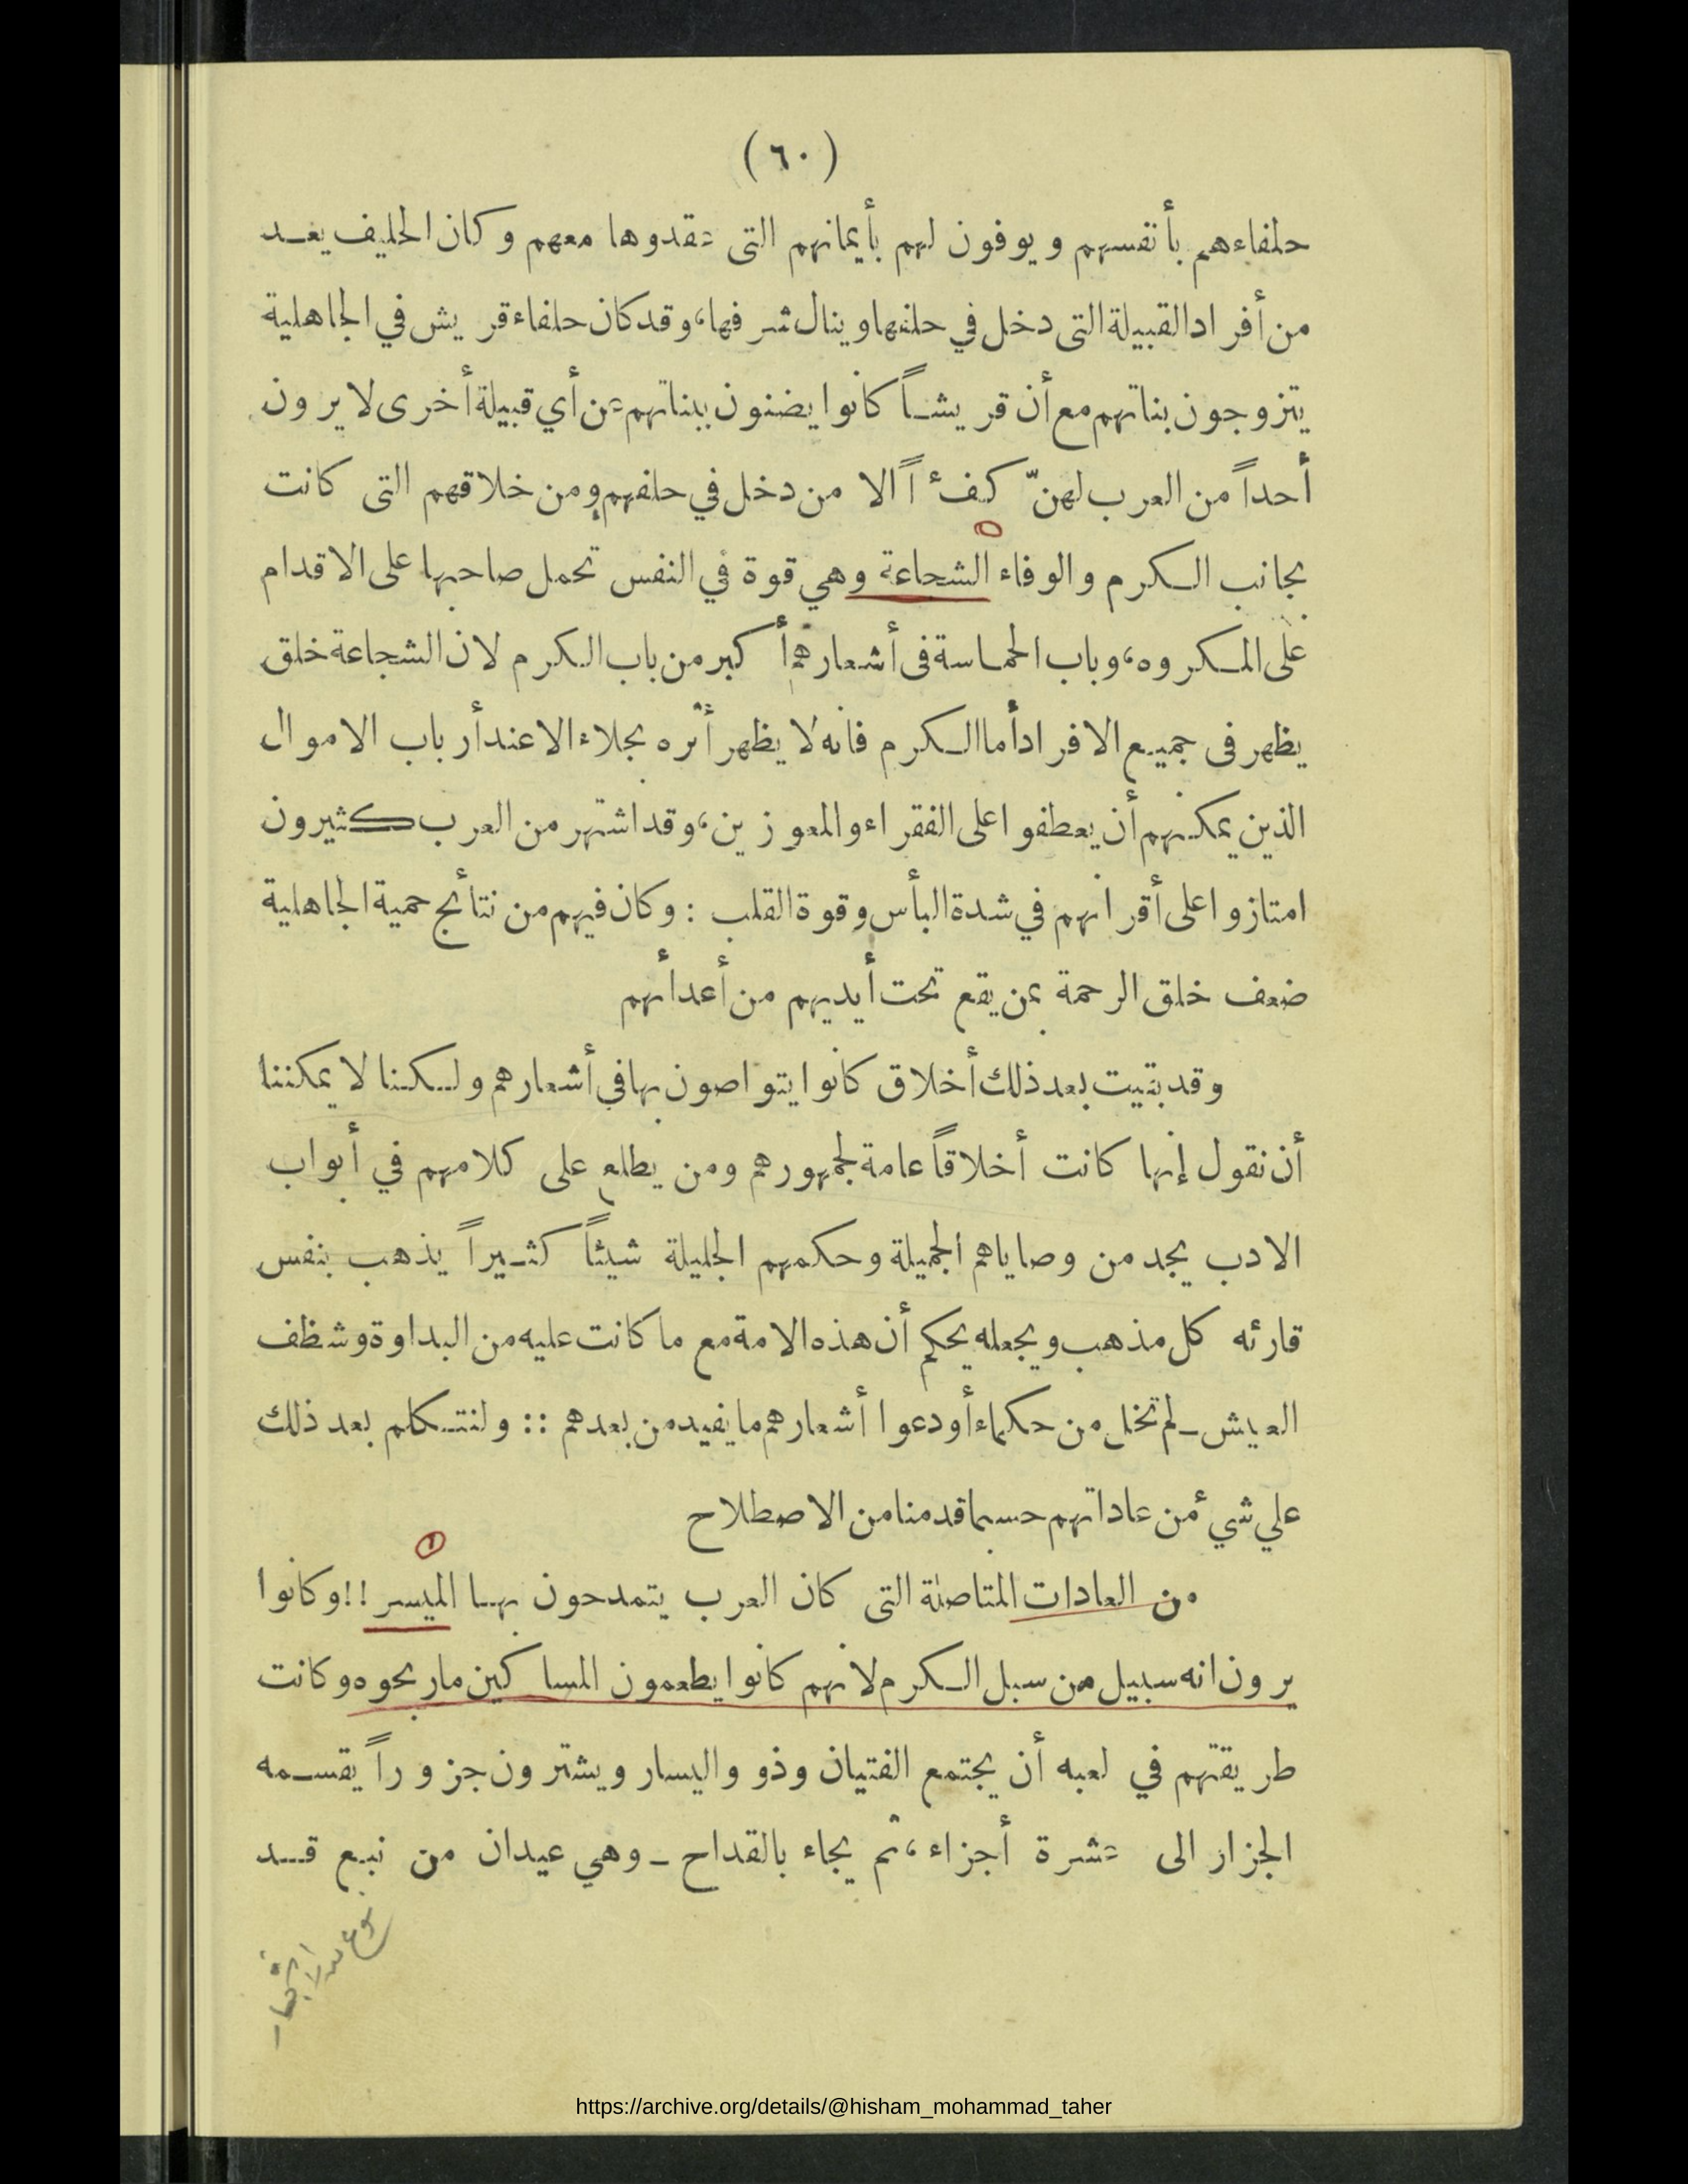 (٦٠)
حلفاءهم بأنفسهم ويوفون لهم بأيمانهم التى عقدوها معهم وكان الحليف يعـد
من أفراد القبيلة التى دخل في حلفها وينال شرفها، وقد كان حلفاء قريش في الجاهلية
يتزوجون بناتهم مع أن قريشـاً كانوا يضنون ببناتهم عن أي قبيلة أخرى لا يرون
أحداً من العرب لهنّ كفءًا الا من دخل في حلفهم ومن خلاقهم التى كانت
بجانب الـكرم والوفاء الشجاعة وهي قوة في النفس تحمل صاحبها على الاقدام
على المـكروه، وباب الحماسة فى أشعارهم أكبر من باب الـكرم لان الشجاعة خلق
يظهر فى جميع الافراد أما الـكرم فانه لا يظهر أثره بجلاء الا عند أرباب الاموال
الذين يمكنهم أن يعطفوا على الفقراء والمعوزين، وقد اشتهر من العرب كثيرون
امتازوا على أقرانهم في شدة البأس وقوة القلب : وكان فيهم من نتائج حمية الجاهلية
ضعف خلق الرحمة بمن يقع تحت أيديهم من أعدأهم
وقد بقيت بعد ذلك أخلاق كانوا يتواصون بها في أشعارهم ولـكنا لا يمكننا
أن نقول إنها كانت أخلاقاً عامة لجمهورهم ومن يطلع على كلامهم في أبواب
الادب يجد من وصاياهم الجميلة وحكمهم الجليلة شيئاً كثـيراً يذهب بنفس
قارئه كل مذهب ويجعله يحكم أن هذه الامة مع ما كانت عليه من البداوة وشظف
العيش ـ لم تخل من حكماء أودعوا أشعارهم ما يفيد من بعدهم :: ولنتـكلم بعد ذلك
علي شيء من عاداتهم حسبما قدمنا من الاصطلاح
١
من العادات المتاصلة التى كان العرب يتمدحون بهـا الميسر !! وكانوا
يرون انه سبيل من سبل الـكرم لانهم كانوا يطعمون المساكين ما ربحوه وكانت
طريقتهم في لعبه أن يجتمع الفتيان وذو واليسار ويشترون جزوراً يقسـمه
الجزار الى عشرة أجزاء، ثم يجاء بالقداح ـ وهي عيدان من نبع قـد
https://archive.org/details/@hisham_mohammad_taher